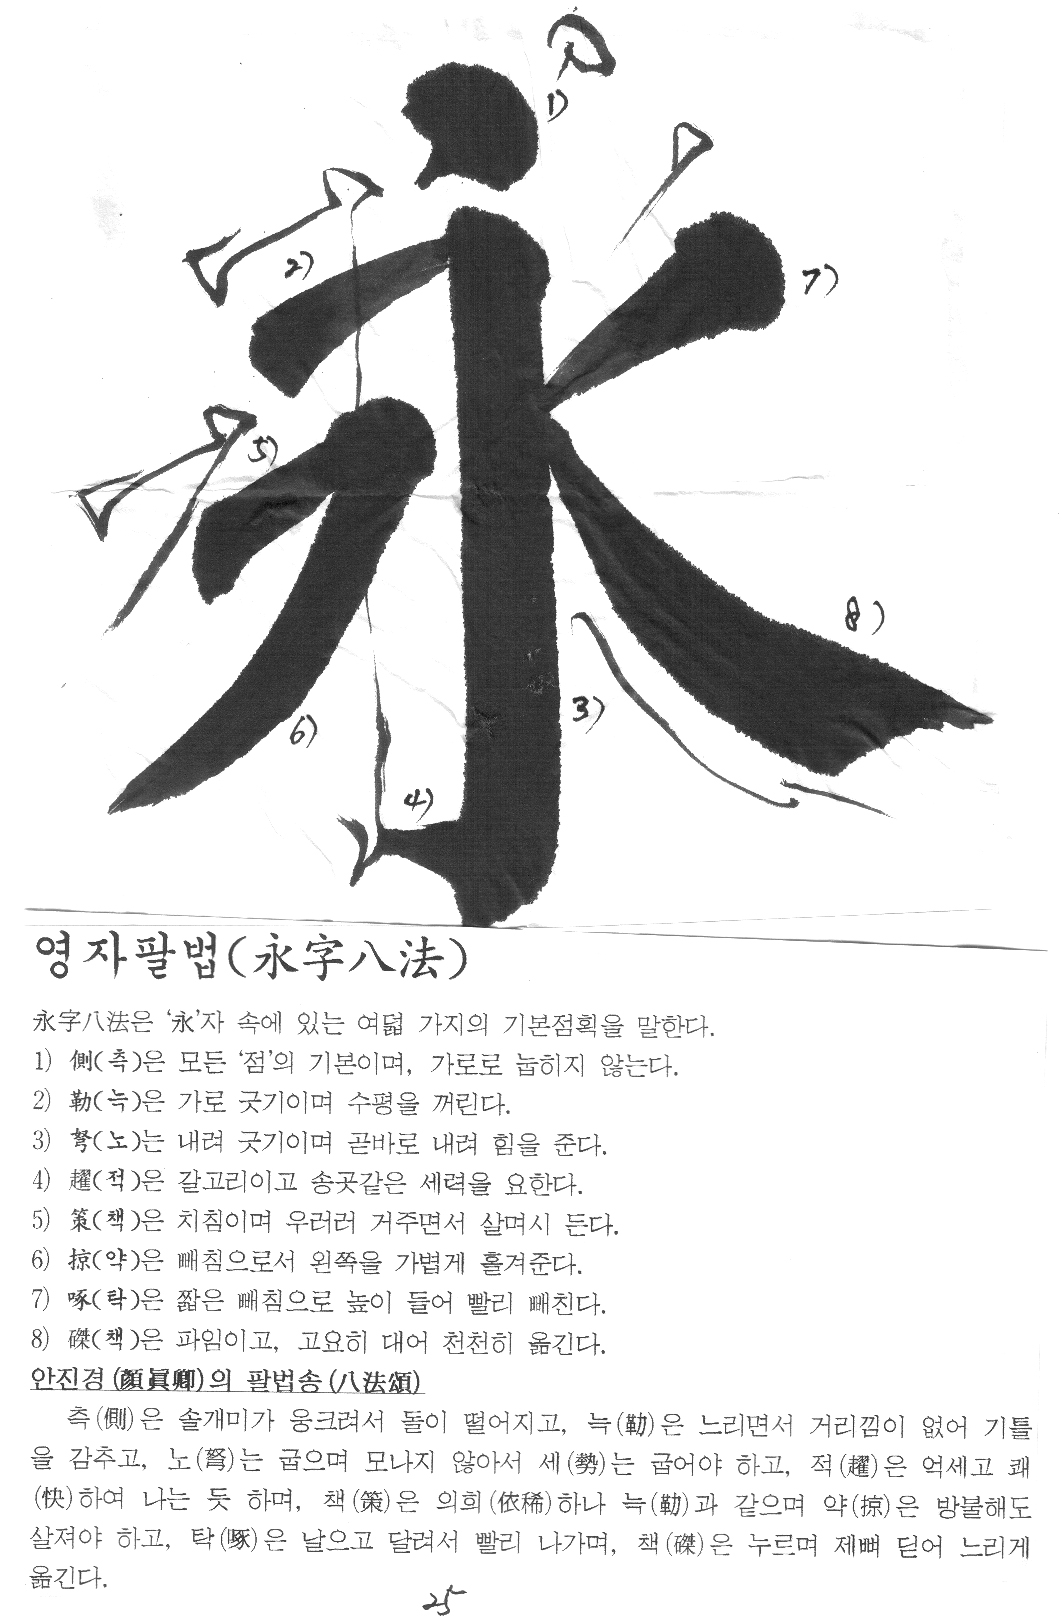 永
1)
2)
7)
5)
8)
3)
6)
4)
영자팔법(永字八法)
永字八法은 '永'자 속에 있는 여덟 가지의 기본점획을 말한다.
1) 側(측)은 모든 '점'의 기본이며, 가로로 눕히지 않는다.
2) 勒(늑)은 가로 긋기이며 수평을 꺼린다.
3) 努(노)는 내려 긋기이며 곧바로 내려 힘을 준다.
4) 趯(적)은 갈고리이고 송곳같은 세력을 요한다.
5) 策(책)은 치침이며 우러러 거주면서 살며시 든다.
6) 掠(약)은 삐침으로서 왼쪽을 가볍게 흘겨준다.
7) 啄(탁)은 짧은 삐침으로 높이 들어 빨리 삐친다.
8) 磔(책)은 파임이고, 고요히 대어 천천히 옮긴다.
안진경(顔眞卿)의 팔법송(八法頌)
측(側)은 솔개미가 웅크려서 돌이 떨어지고, 늑(勒)은 느리면서 거리낌이 없어 기틀
을 감추고, 노(弩)는 굽으며 모나지 않아서 세(勢)는 굽어야 하고, 적(趯)은 억세고 쾌
(快)하여 나는 듯 하며, 책(策)은 의희(依稀)하나 늑(勒)과 같으며 약(掠)은 방불해도
살져야 하고, 탁(啄)은 날으고 달려서 빨리 나가며, 책(磔)은 누르며 제뻐 딛어 느리게
옮긴다.
25